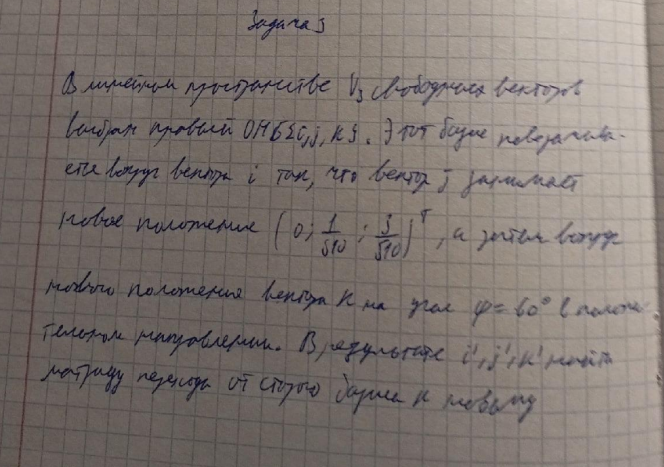 Задача 3
В линейном пространстве V₃ свободных векторов
выбран правый ОНБ {i, j, k}. Этот базис поворачива-
ется вокруг вектора i так, что вектор j занимает
новое положение (0; 1/√10; 3/√10)ᵀ, а затем вокруг
нового положения вектора k на угол φ = 60° в положи-
тельном направлении. В результате i', j', k' найти
матрицу перехода от старого базиса к новому